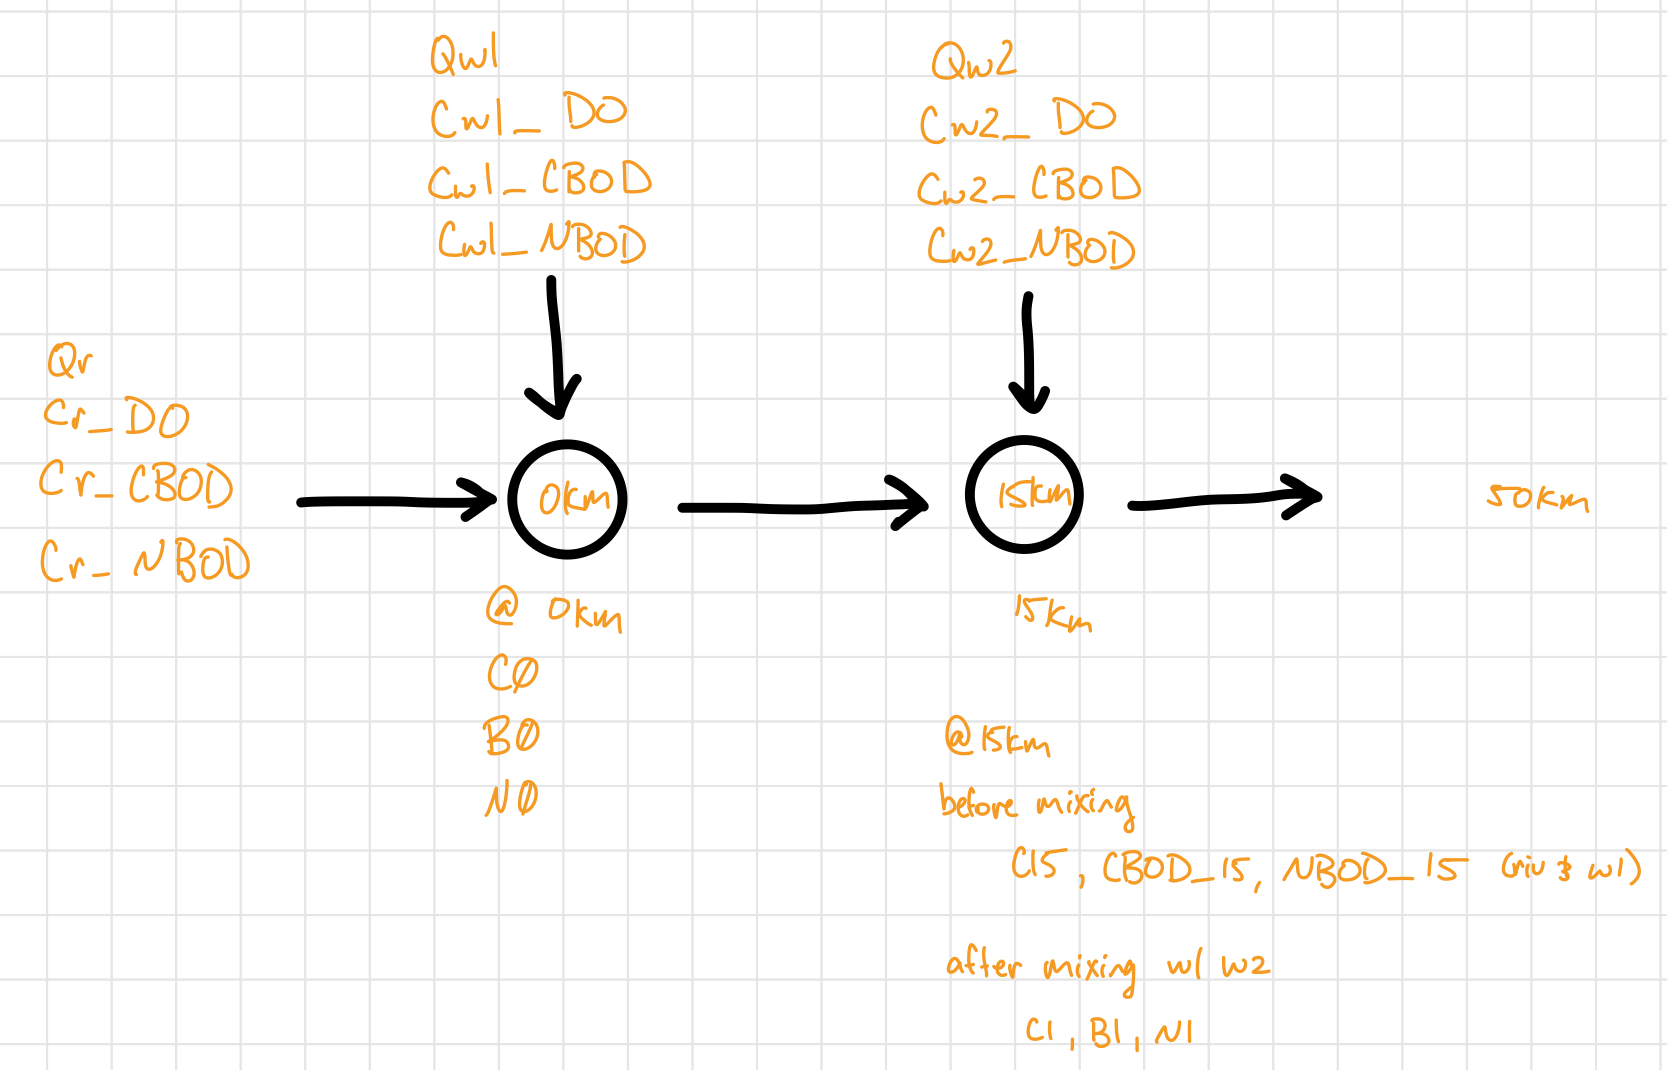 Qw1
Cw1_ DO
Cw1_ CBOD
Cw1_ NBOD
Qw2
Cw2_ DO
Cw2_ CBOD
Cw2_NBOD
Qr
Cr_ DO
Cr_ CBOD
Cr_ NBOD
0km
15km
50km
@ 0km
CØ
BØ
NØ
15km
@15km
before mixing
C15, CBOD_15, NBOD_15 (riv & w1)
after mixing w/ w2
C1, B1, N1